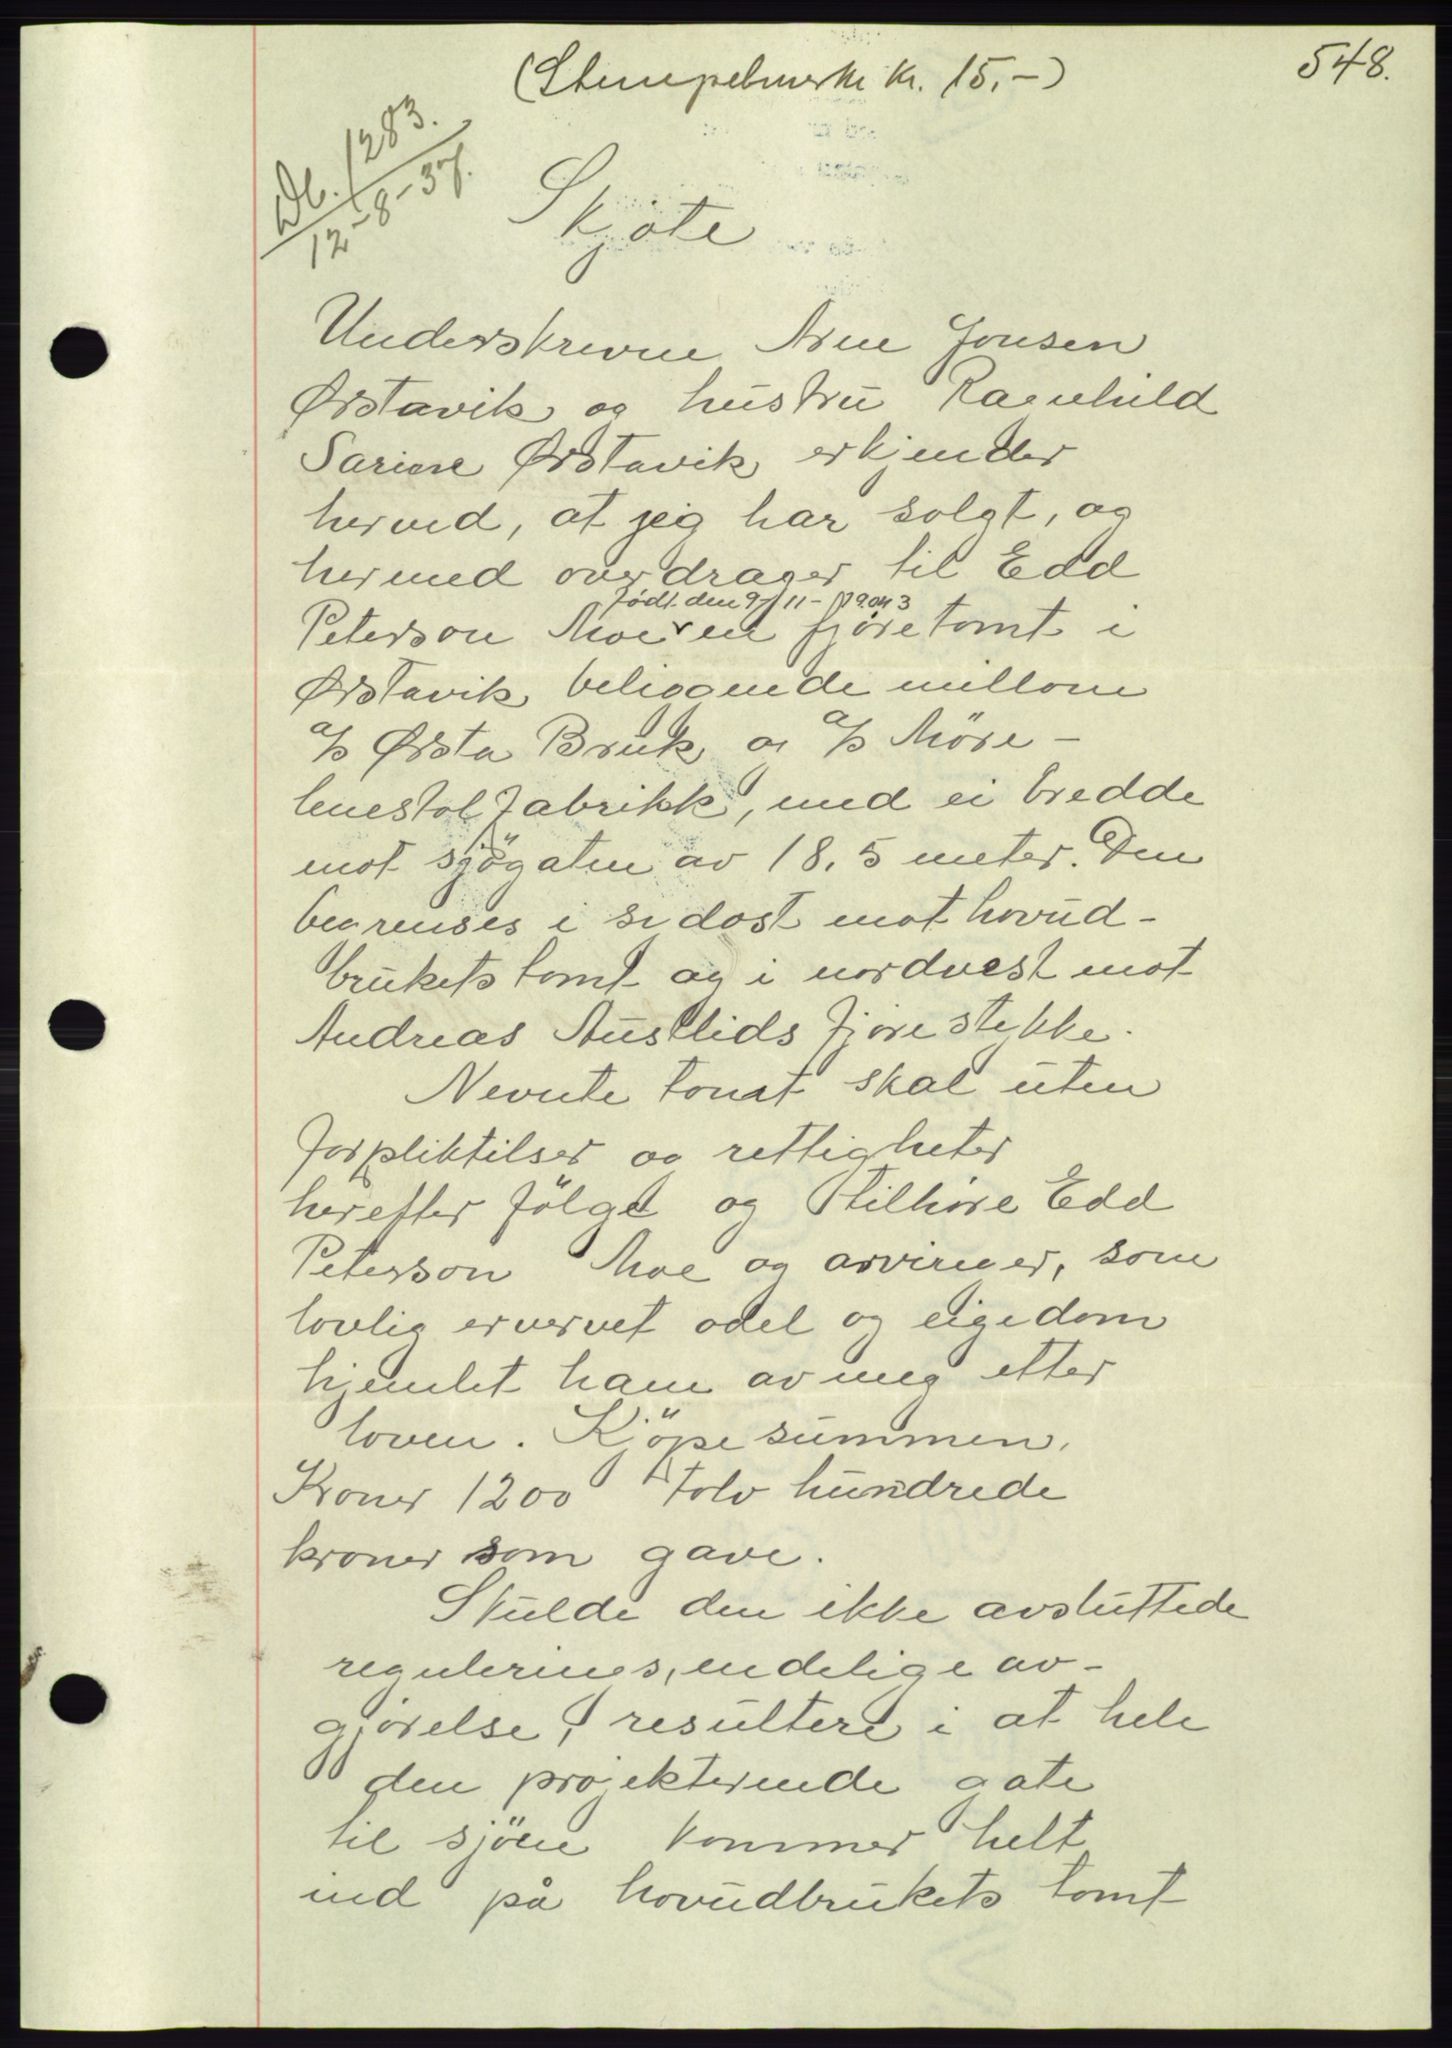 548.
(Stempelmerke kr. 15.-)
Db. 1283.
12-8-37.
Skjöte
Underskrevne Arne Jonsen
Ørstavik og hustru Ragnhild
Sarine Ørstavik erkjender
herved, at jeg har solgt, og
hermed overdrager til Edd
født den 9/11-1903
Peterson Moe en fjøretomt i
Ørstavik beliggende millom
a/s Ørsta Bruk og a/s Möre-
lenestolfabrikk, med ei bredde
mot sjögaten av 18.5 meter. Den
begrenses i sydost mot hovud-
brukets tomt og i nordvest mot
Andreas Austlids fjøre stykke.
Nevnte tomt skal uten
forpliktilser og rettigheter
herefter fölge og tilhøre Edd
Peterson Moe og arvinger, som
lovlig ervervet odel og eigedom
hjemlet ham av meg etter
loven. Kjöpesummen,
Kroner 1200 tolv hundrede
kroner som gave.
Skulde den ikke avsluttede
regulerings, endelige av-
gjørelse, resultere i at hele
den projekterende gate
til sjöen kommer helt
ind på hovudbrukets tomt